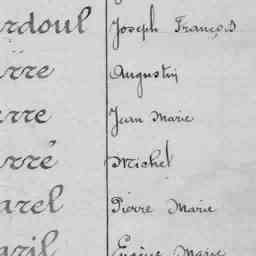 rdoul Joseph François
rre Augustin
rre Jean Marie
rré Michel
arel Pierre Marie
aril Eugène Marie